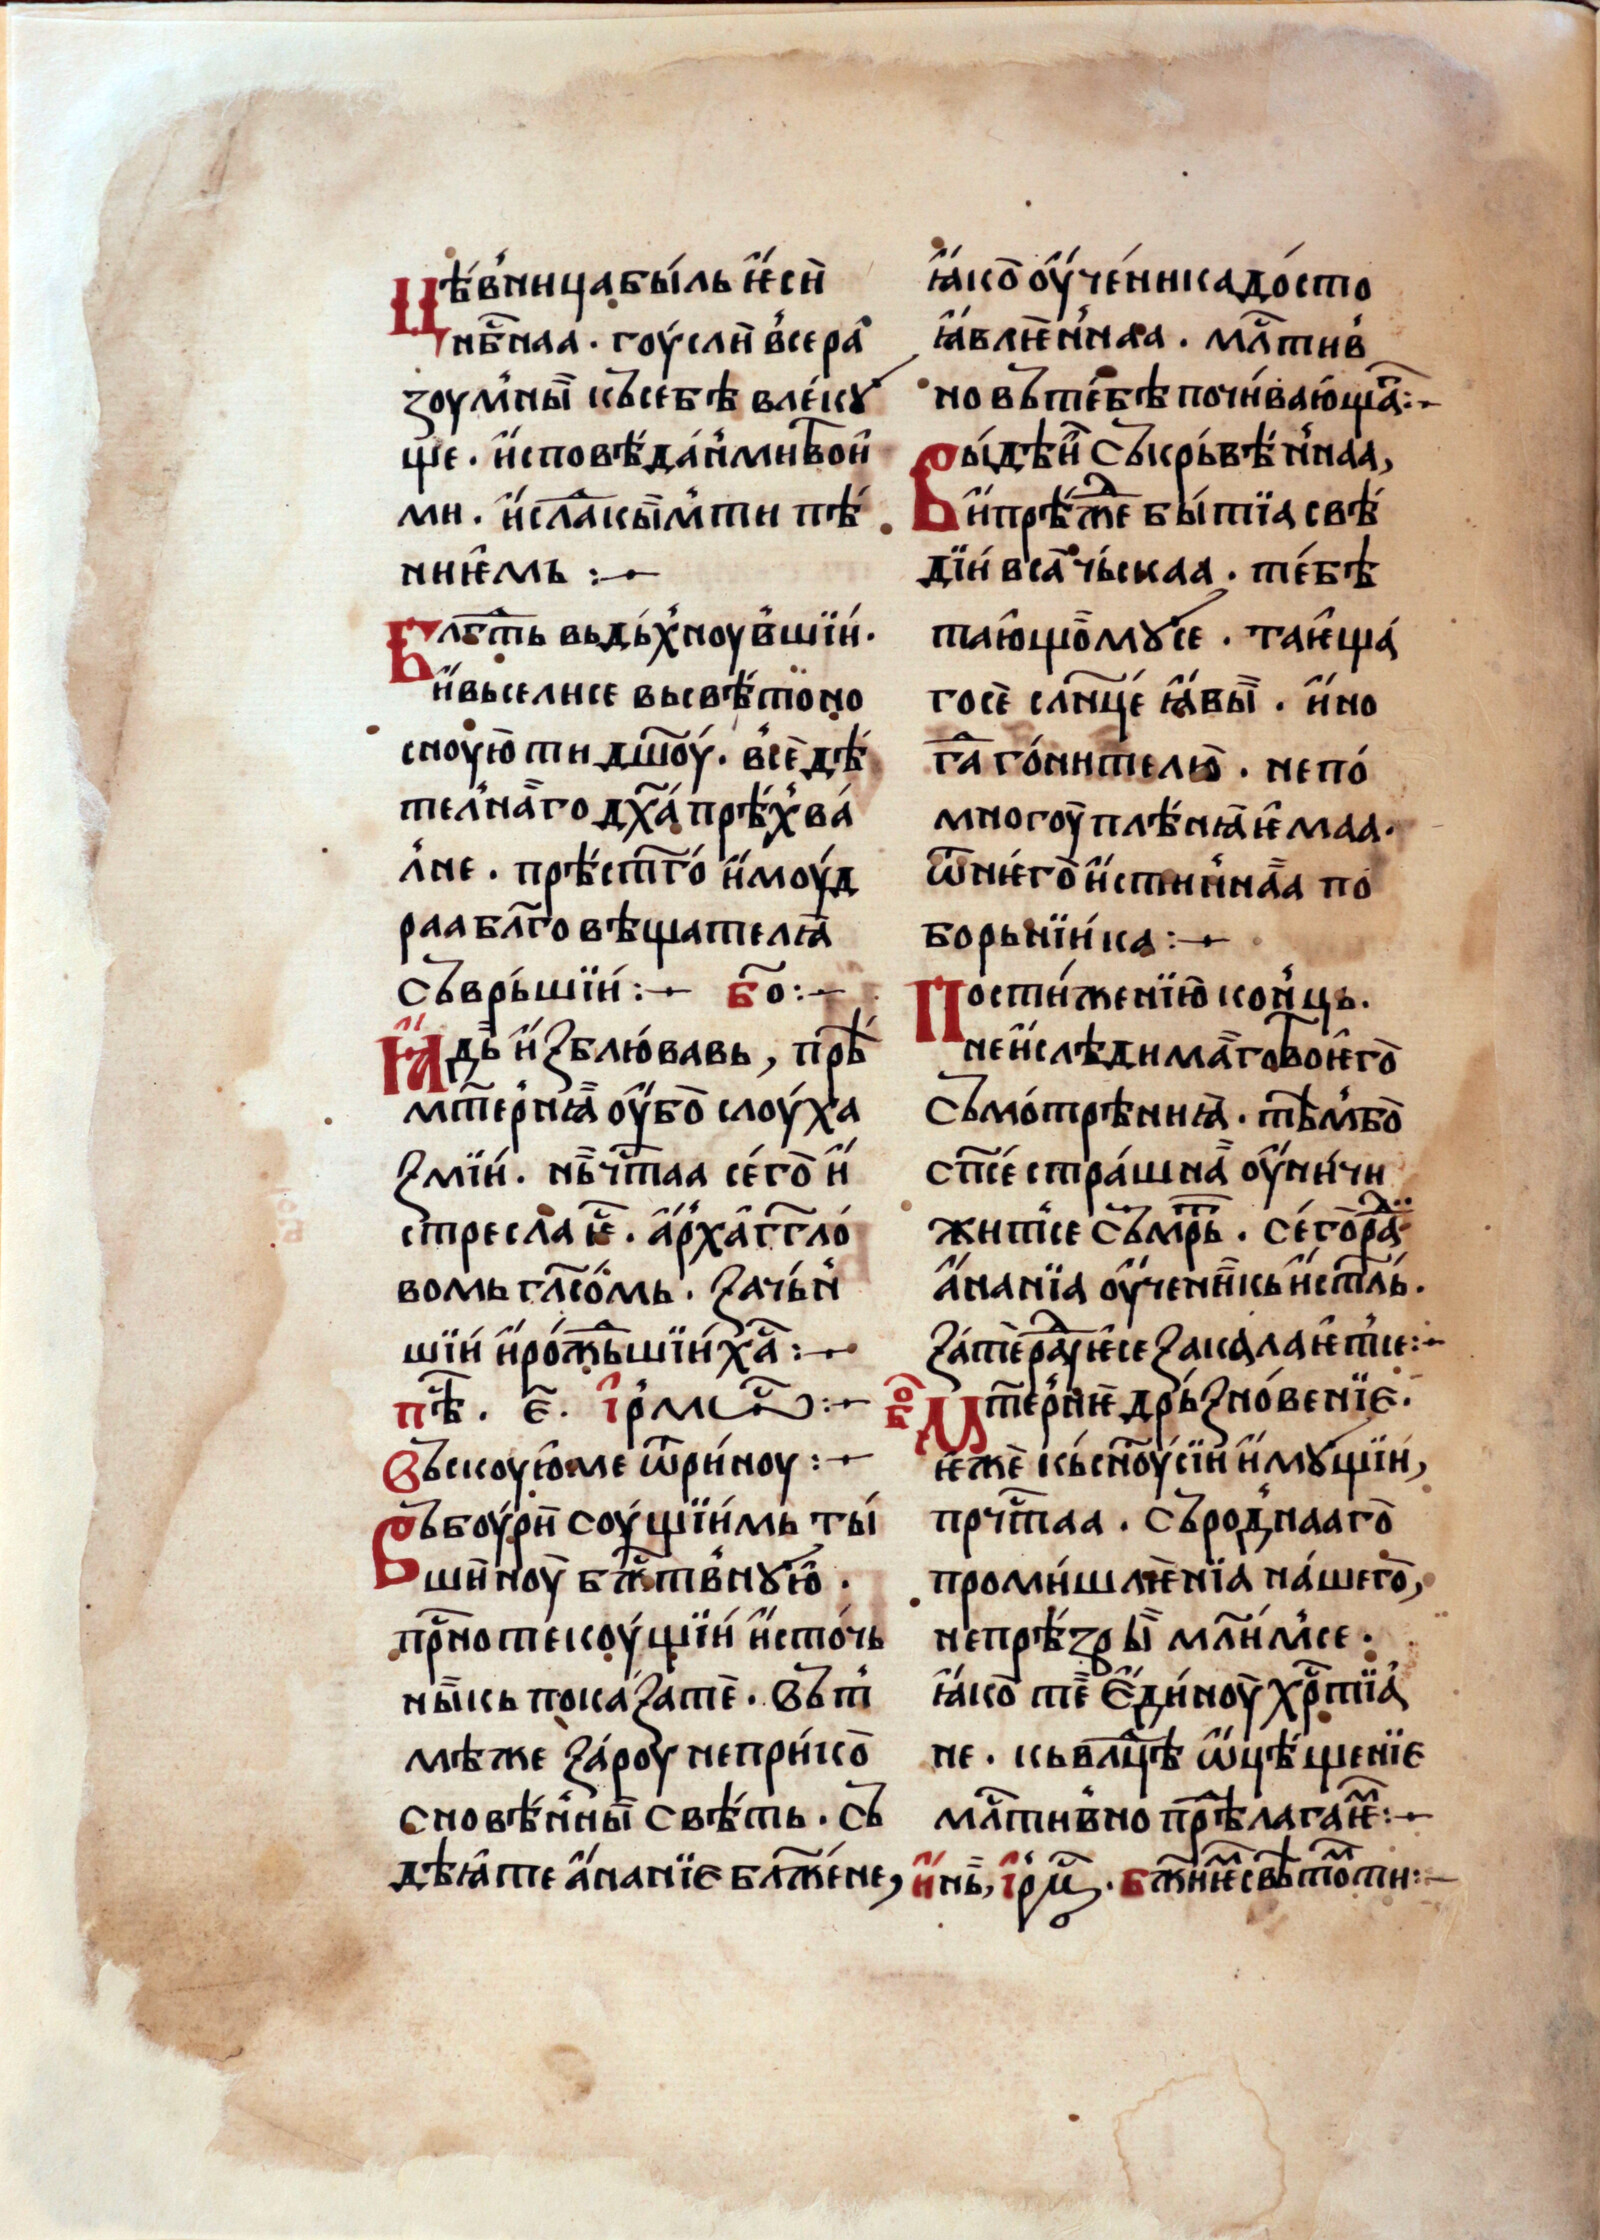 Цѣ́вница бы́ль и҆́ѥси̏
нб҃снаа · гоу́сли̏ все ра
зоу́мны̏ къ себѣ̀ влекꙋ́
ще · и҆сповѣ́да́нми твои҆
ми · и҆ сла́кы́мти пѣ́
нниѥмь :—
Бл҃гсть вьдь́хноу́вшїи́ ·
и҆́вьселисе вь свѣ́тѡно
сноую̀ ти дш҃оу́ · всѐдѣ́
тел́на̏го дх҃а́ прѣ́хва́
лне · прѣ́ст҃го́ и҆ моу́д
раа бл҃говѣщателꙗ̏
съврь́шїи́ :— бо҃ :—
Ꙗ҆́дь̏ и҆зблю́вавь, прѣ́
мт҃ернꙗ̏ оу҆́бо̀ слоу́ха
змїи́ · нь̏ чс҃таа се́го̀ и҆
стресла ѥ҆̀ · а҆рха́гг҃ло́
вомь гл҃со́мь · зачь́н
шїи́ и҆ро́жь̑шїи́ х҃а :—
пѣ҃ · є҃ · і҆рмѡ҃ :—
Въскоую́ ме ѿри́ноу :—
Въ боу́ри̏ соу́щїи́мь ты́
ши́ноу̏ бж҃твнꙋю̀ ·
пр҃но текоу́щїи́ и҆сто́чь
ны̏кь показа те̏ · Въ т
мѣ же за́роу непри́ко̀
снове́нны̏ свѣ́ть · съ
дѣꙗ҆те а҆нанїє блж҃е́не,
ꙗ҆́ко̀ оу҆́че́ника до́сто
ꙗ҆влѥ́ннаа · мл҃стив
но вь те́бѣ почи́ваю́ща̑ :—
Вы́дѣи̏ съкрь́вѣ́ннаа,
и҆прѣ́жⷣе бы́тїа свѣ́
дїи́ вса̏чь́скаа · те́бѣ
таю҆що̀мꙋсе · таѥ҆ща́
госѐ сл҃нце́ ꙗ҆́вы̏ · и҆́но
гⷣа го́нителю̏ · непо́
многоу̏ плѣ́нꙗ̏ѥмаа ·
ѿ нѥ́го̀ и҆стинна̏а по́
борьнїи́ка :—
Пости́женїю̏ ко́нць ·
неи҆́слѣ́дима̏го твоѥ҆го̀
съмо́трѣннꙗ̏ · тѣ́мбо̀
сп҃се́ стра́шна̏ оу҆́ни́чи
жи́тсе съмр҃ть · се́го̀ раⷣ
а҆́нанїа оу҆́чени̏кь и҆ст҃ль ·
за́ те̏ раⷣуѥ҆се закалаѥ҆́тсе :—
Мт҃ернѥ̏ дрь́зно́венїє ·
ѥ҆же̏ кь сн҃оу́ сїи́ и҆мꙋ́щїи́,
прчс҃таа · съро́днааго̀
проми́шлѥ́нїа на́шего̀,
не прѣ́зры̏ мл҃и́мсе ·
ꙗ҆́ко̀ те̏ є҆ди́ноу̏ хрс҃тїа́
не · кь вл҃цѣ̀ ѡ҆́цѣ́щенїє
мл҃стивно прѣⷣлагаѥⷨ :—
и҆́нь̏, і҆рмѡ҃ · бж҃ниѥ свѣтⷪмти :—